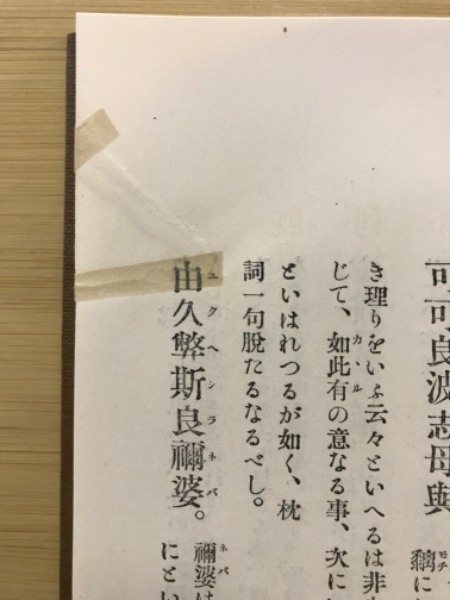 可可良波志母與
黐に
き理りをいふ云々といへるは非
じて、如此有の意なる事、次に
といはれつるが如く、枕
詞一句脱たるなるべし。
由久弊斯良禰婆。
禰婆は
にとい